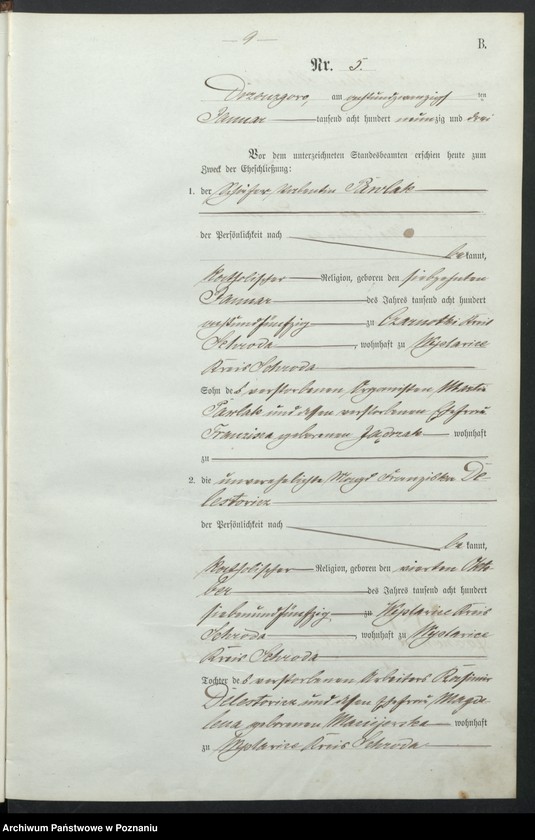 — 9 —
B.
Nr. 5.
am achtundzwanzigsten ten
Januar tausend acht hundert neunzig und drei
Vor dem unterzeichneten Standesbeamten erschien heute zum
Zweck der Eheschließung:
1. der Schäfer, Valentin Pawlak
der Persönlichkeit nach
bekannt,
katholischer Religion, geboren den siebzehnten
Januar des Jahres tausend acht hundert
achtundfünfzig zu Czarnotki Kreis
Schroda, wohnhaft zu
Kreis Schroda
Sohn des verstorbenen Organisten
Pawlak und dessen verstorbenen Ehefrau
geborenen wohnhaft
zu
2. die unverehelichte Magd Franziska
der Persönlichkeit nach
bekannt,
katholischer Religion, geboren den vierten Okto-
ber des Jahres tausend acht hundert
siebenundfünfzig zu Kreis
Schroda, wohnhaft zu
Kreis Schroda
Tochter des verstorbenen Arbeiters Kasimir
und dessen Ehefrau Magda-
lena geborenen Maciejewska wohnhaft
zu Kreis Schroda
Archiwum Państwowe w Poznaniu